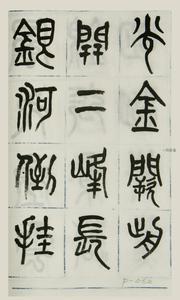 光金闕前
開二峰長
銀河倒挂